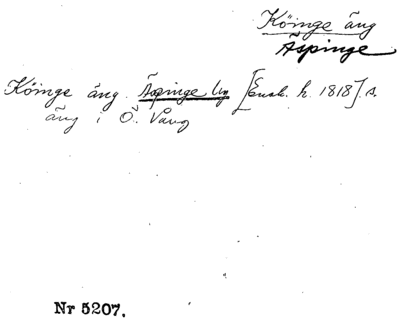 Köinge äng
Äspinge
Köinge äng Äspinge by [Ensk. h. 1818]. s.
äng i Ö. Vång
Nr 5207.